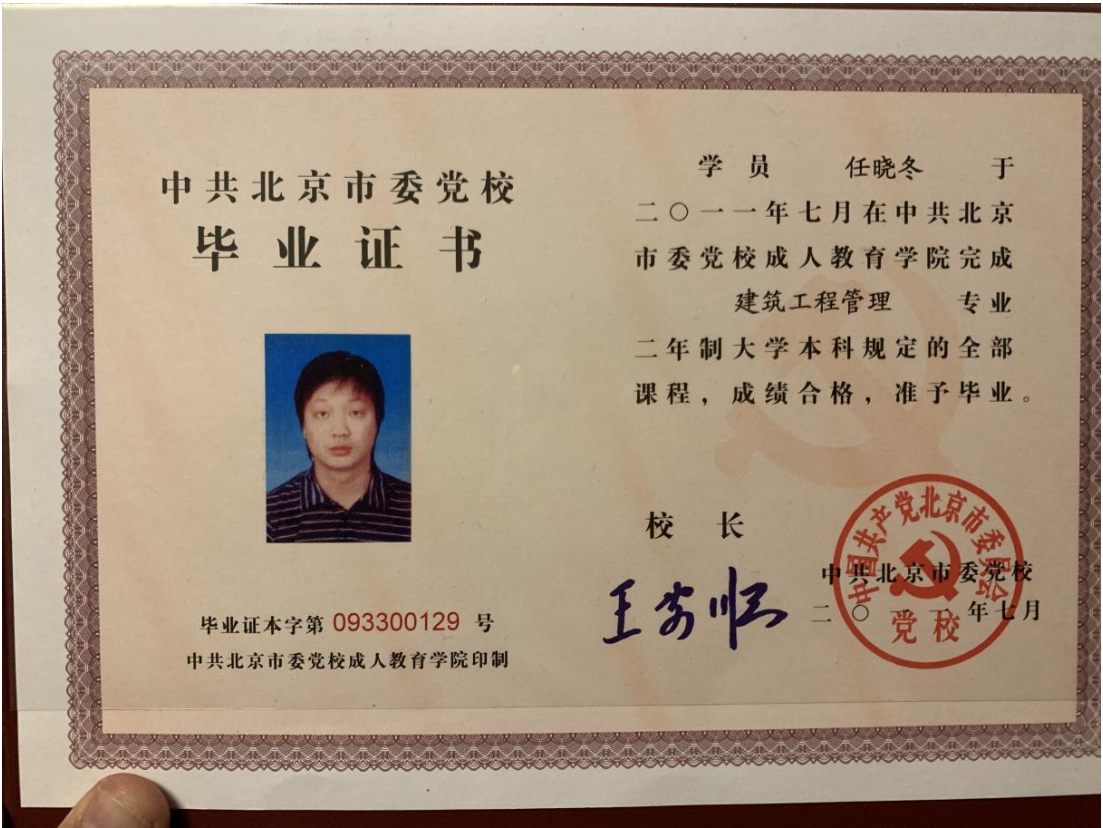 中共北京市委党校
毕业证书
毕业证本字第 093300129 号
中共北京市委党校成人教育学院印制
学员 任晓冬 于
二〇一一年七月在中共北京
市委党校成人教育学院完成
建筑工程管理 专业
二年制大学本科规定的全部
课程，成绩合格，准予毕业。
校长
王安顺
中国共产党北京市委员会
党校
中共北京市委党校
二〇一一年七月